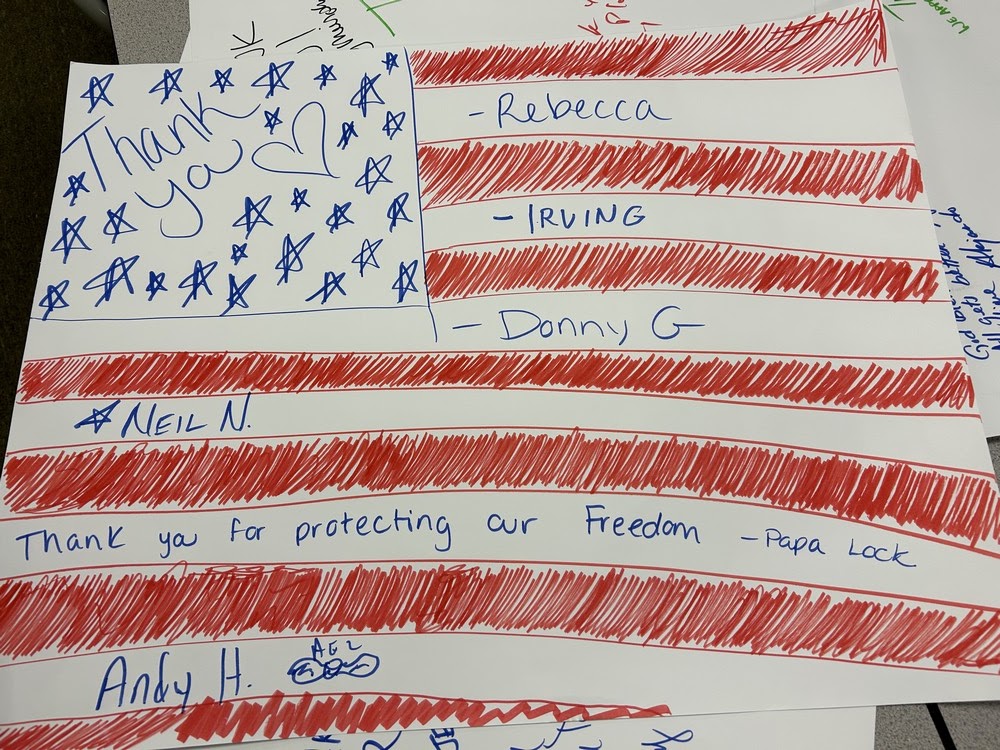 Thank
ya
- Rebecca
- IRVING
- Donny G
NEIL N.
Thank you for protecting our Freedom - Papa Lock
Andy H.